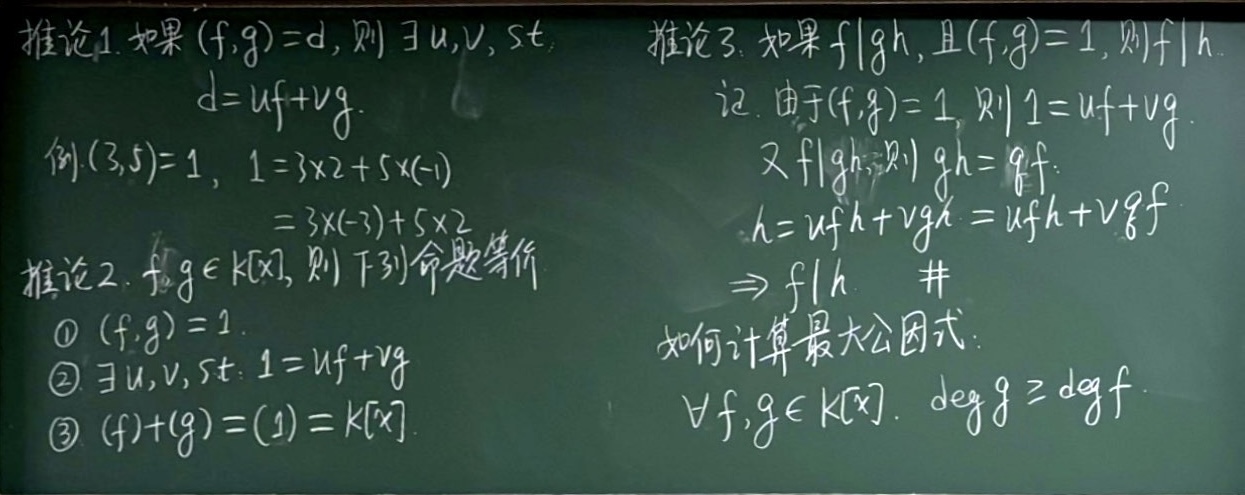 推论1. 如果 (f,g)=d, 则 ∃ u,v, s.t.
d=uf+vg.
例. (3,5)=1, 1=3×2+5×(-1)
=3×(-3)+5×2
推论2. f,g∈K[x], 则下列命题等价
① (f,g)=1.
② ∃ u,v, s.t. 1=uf+vg
③ (f)+(g)=(1)=K[x].
推论3. 如果 f|gh, 且(f,g)=1, 则f|h.
记. 由于(f,g)=1, 则 1=uf+vg.
又 f|gh, 则 gh=qf.
h=ufh+vgh=ufh+vqf
⇒ f|h. #
如何计算最大公因式:
∀f,g∈K[x]. deg g≥deg f.